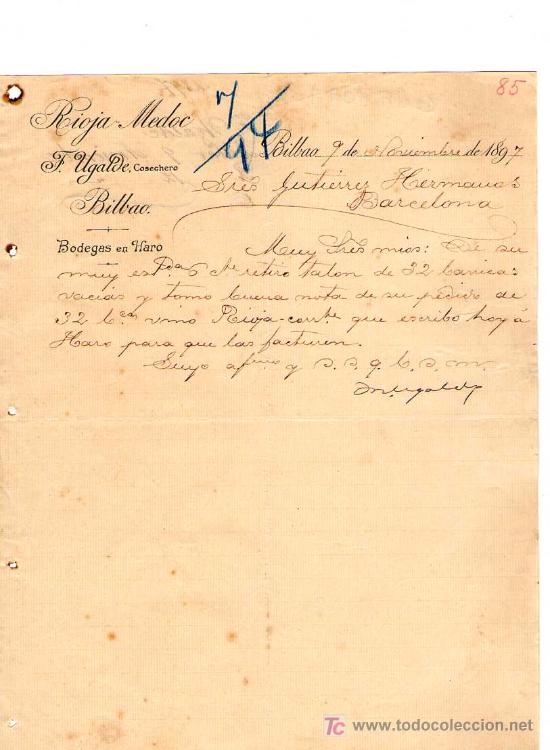 85
7/97
Rioja-Medoc
F. Ugalde, Cosechero
Bilbao.
Bodegas en Haro
Bilbao 9 de Noviembre de 1897
Sres Gutiérrez Hermanos
Barcelona
Muy Sres mios: De su
muy esda 6 cte retiro talon de 32 barricas
vacias y tomo buena nota de su pedido de
32 bcas vino Rioja-corrte que escribo hoy á
Haro para que las facturen.
Suyo afmo y s. s. q. b. s. m.
Ugalde
TC
www.todocoleccion.net